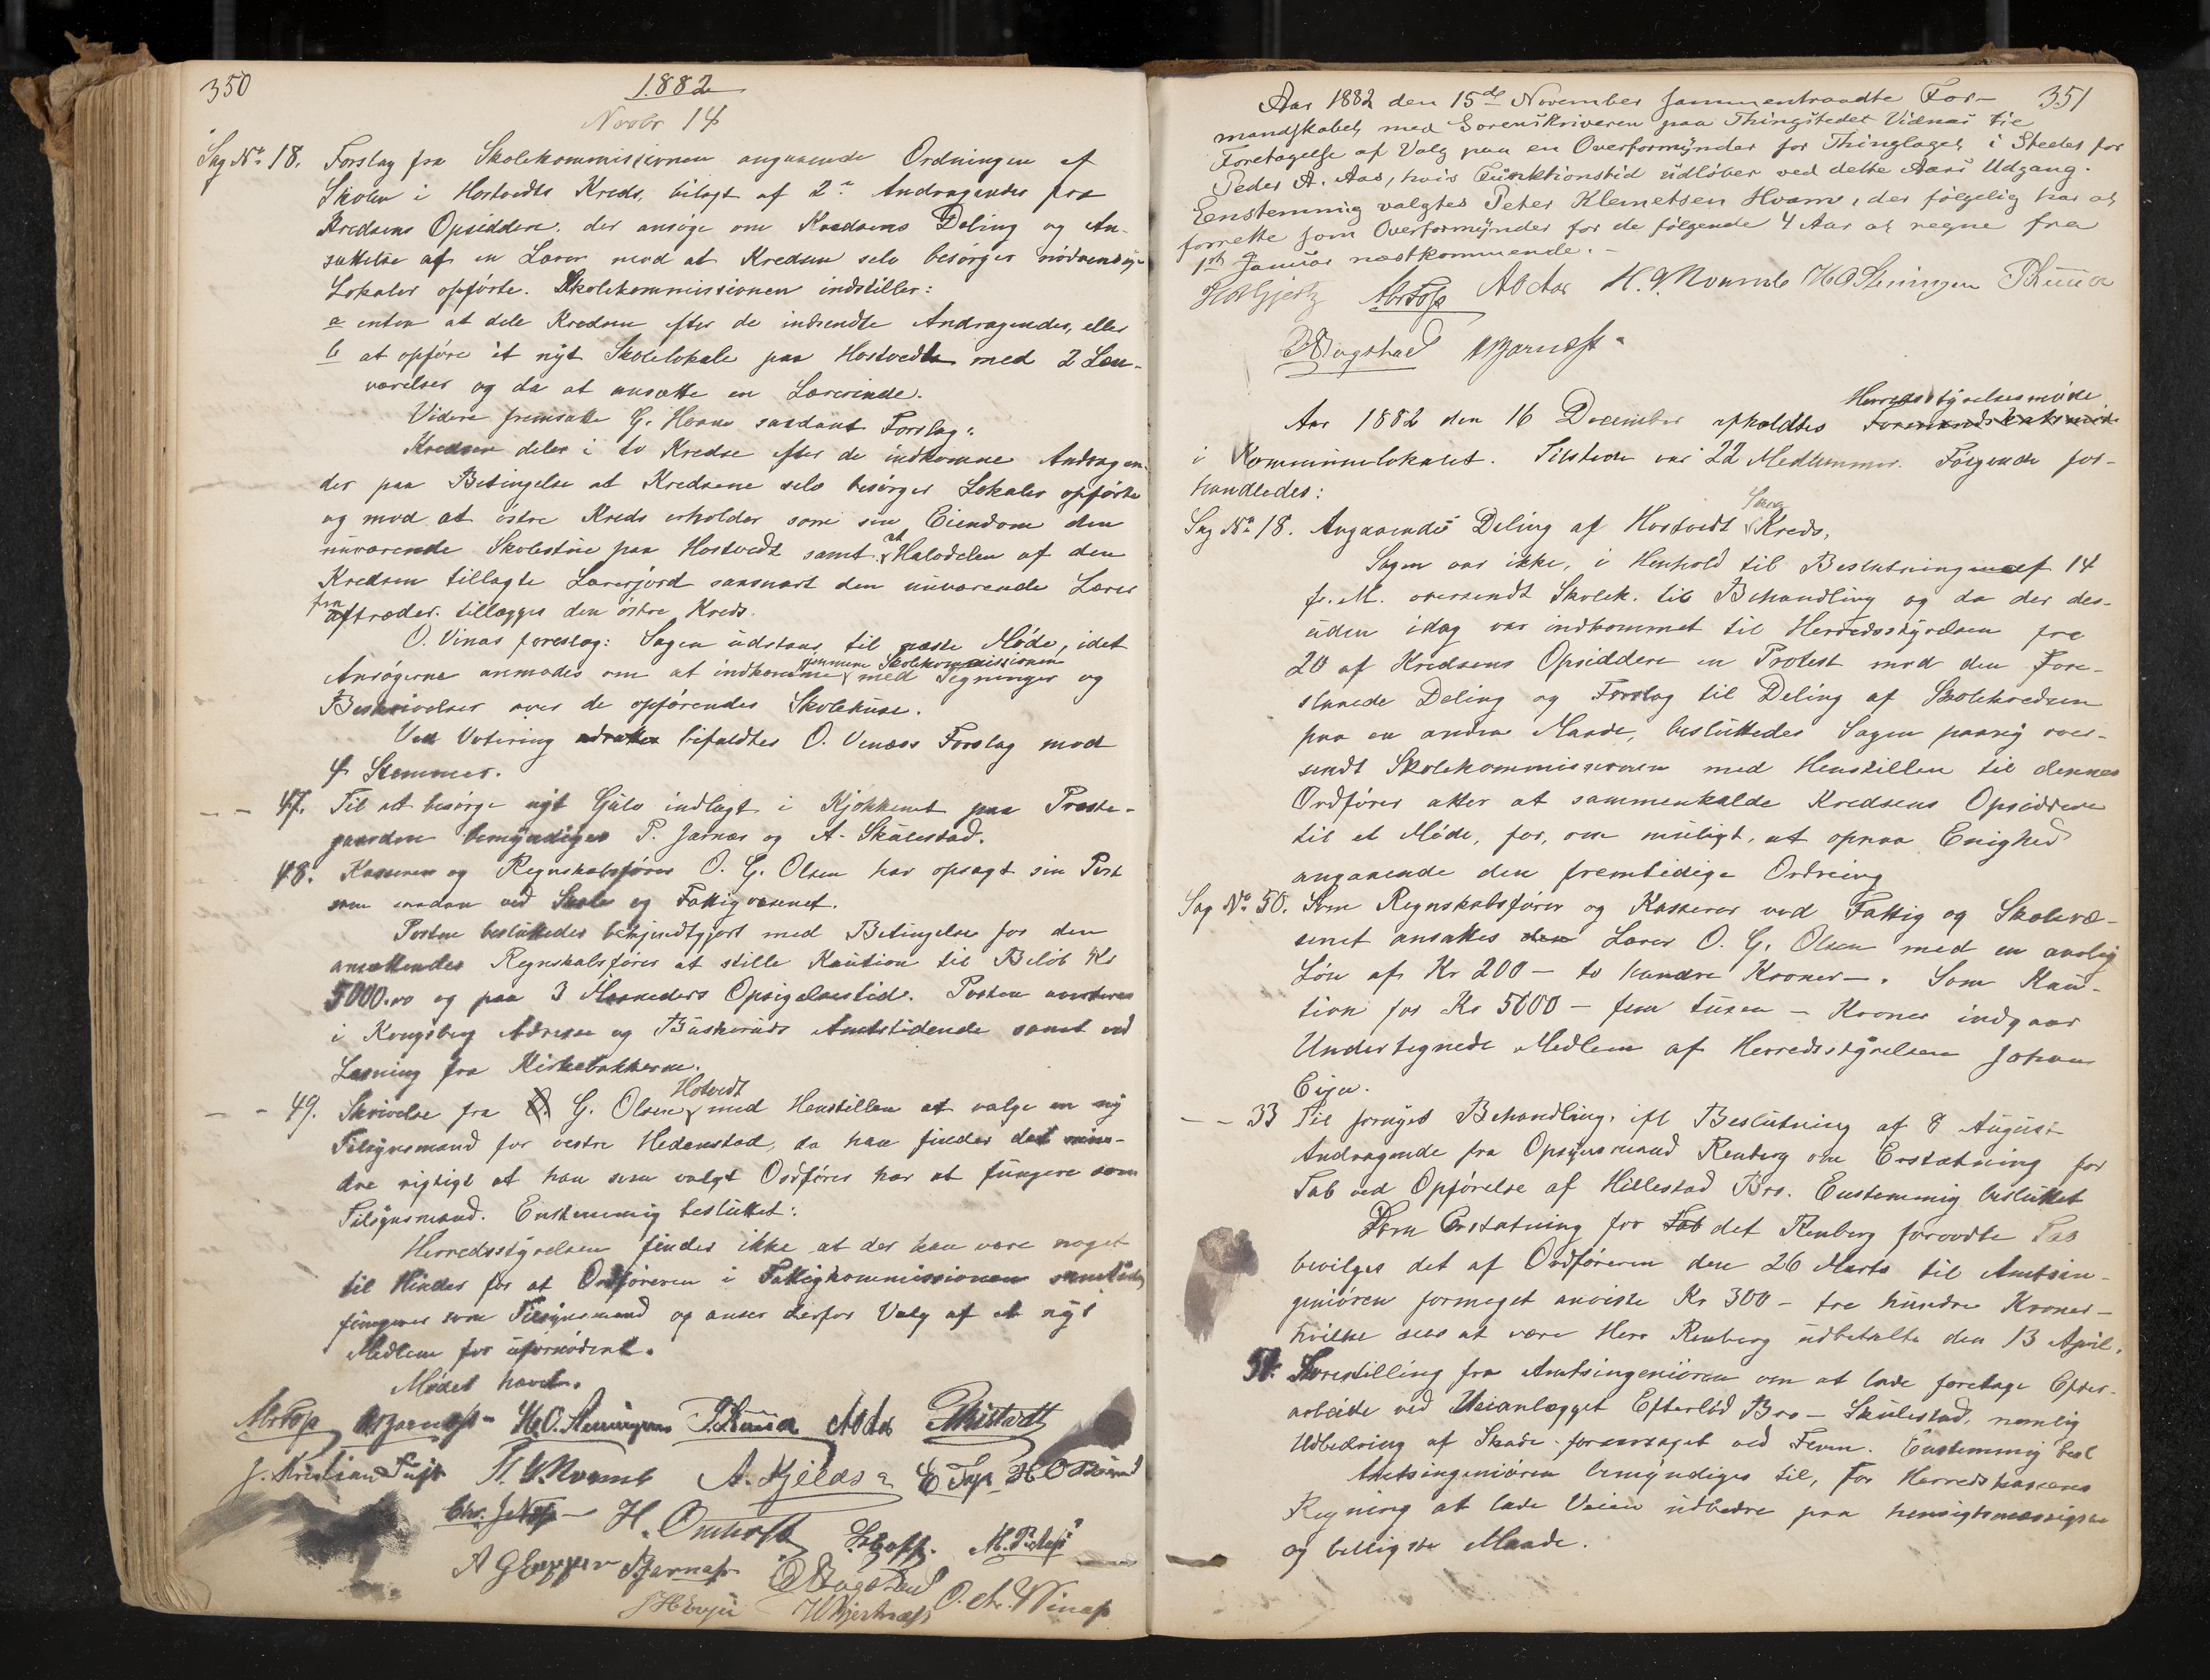 350
1882
Novbr 14
Sag No 18. Forslag fra Skolekommissionen angaaende Ordningen af
Skolen i Hostvedts Kreds, bilagt af 2de Andragender fra
Kredsens Opsiddere, der ansøge om Kredsens Deling og An-
sættelse af en Lærer mod at Kredsen selv besørger nødvendige
Lokaler opførte. Skolekommissionen indstiller:
a enten at dele Kredsen efter de indsendte Andragender, eller
b at opføre et nyt Skolelokale paa Hostvedt med 2 Læse-
værelser og da at ansætte en Lærerinde.
Videre fremsatte G. saadant Forslag:
Kredsen deles i to Kredse efter de indkomne Andragen-
der paa Betingelse at Kredsene selv besørger Lokaler opførte
og mod at østre Kreds erholder som sin Eiendom den
nuværende Skolestue paa Hostvedt samt at Halvdelen af den
Kredsen tillagte Lærerjord saasnart den nuværende Lærer
fratræder tillægges den østre Kreds.
O. Vinæs foreslog: Sagen udstaar til næste Møde, idet
Ansøgerne anmodes om at indkomme gjennem Skolekommissionen med Tegninger og
Beskrivelser over de opførendes Skolehuse.
Ved Votering bifaldtes O. Vinæss Forslag mod
4 Stemmer.
— — 47. Til at besørge nyt Gulv indlagt i Kjøkkenet paa Præste-
gaarden bemyndiges P. Jarnæs og A. Skulestad.
48. Kasserer og Regnskabsfører O. G. Olsen har opsagt sin Post
som saadan ved Skole og Fattigvæsenet.
Posten besluttedes bekjendtgjort med Betingelse for den
ansættendes Regnskabsfører at stille Kaution til Beløb Kr
5000.00 og paa 3 Maaneders Opsigelsestid. Posten averteres
i Kongsberg Adresse og Buskeruds Amtstidende samt ved
Læsning fra Kirkebakkerne.
— - 49. Skrivelse fra G. Olsen Hotvedt med Henstillen at vælge en ny
Tilsynsmand for vestre Hedenstad, da han finder det min-
dre rigtigt at han som valgt Ordfører har at fungere som
Tilsynsmand. Enstemmig besluttet:
Herredsstyrelsen finder ikke at der kan være noget
til Hinder for at Ordføreren i Fattigkommissionen samtidig
fungerer som Tilsynsmand og anser derfor Valg af et nyt
Medlem for ufornødent.
Mødet hævet.
H. O. Steningen
A. Kjeldsen
351
Aar 1882 den 15de November sammentraadte For-
mandskabet med Sorenskriveren paa Thingstedet Vidnæs til
Foretagelse af Valg paa en Overformynder for Thinglaget i Stedet for
Peder A. Aas, hvis Funktionstid udløber ved dette Aars Udgang.
Eenstemmig valgtes Peter Klemetsen Hvam, der følgelig har at
forrette som Overformynder for de følgende 4 Aar at regne fra
1ste Januar næstkommende. -
H O Steningen
Bogstad
Aar 1882 den 16 December afholdtes Herredsstyrelsesmøde Formandskabsmøde
i Kommunelokalet. Tilstede var 22 Medlemmer. Følgende for-
handledes:
Sag No 18. Angaaende Deling af Hostvedt Kreds,
Sagen var ikke, i Henhold til Beslutning af 14
f. M. oversendt Skolek. til Behandling og da der des-
uden idag var indkommet til Herredsstyrelsen fra
20 af Kredsens Opsiddere en Protest mod den fore-
slaaede Deling og Forslag til Deling af Skolekredsen
paa en anden Maade, besluttedes Sagen paany over-
sendt Skolekommissionen med Henstillen til dennes
Ordfører atter at sammenkalde Kredsens Opsiddere
til et Møde, for, om muligt, at opnaa Enighed
angaaende den fremtidige Ordning
Sag No 50. Som Regnskabsfører og Kasserer ved Fattig og Skolevæ-
senet ansattes den Lærer O. G. Olsen med en aarlig
Løn af Kr 200 — to hundre Kroner —. Som Kau-
tion for Kr 5000 — fem tusen — Kroner indgaar
Undertegnede Medlem af Herredsstyrelsen Johan
Evju.
— - 33 Til fornyet Behandling, ifl Beslutning af 8 August
Andragende fra Opsynsmand Renberg om Erstatning for
Tab ved Opførelse af Hillestad Bro. Enstemmig besluttet
Som Erstatning for Tab det Renberg forvoldte Tab
bevilges det af Ordføreren den 26 Marts til Amtsin-
geniøren formeget anviste Kr 300 — tre hundre Kroner —
hvilke sees at være Herr Renberg udbetalte den 13 April.
51. Forestilling fra Amtsingeniøren om at lade foretage Efter-
arbeide ved Veianlægget Efterløb Bro — Skulestad, nemlig
Udbedring af Skade foraarsaget ved Flom. Enstemmig besl
Amtsingeniøren bemyndiges til, for Herredskassens
Regning at lade Veien udbedre paa hensigtsmæssigste
og billigste Maade.